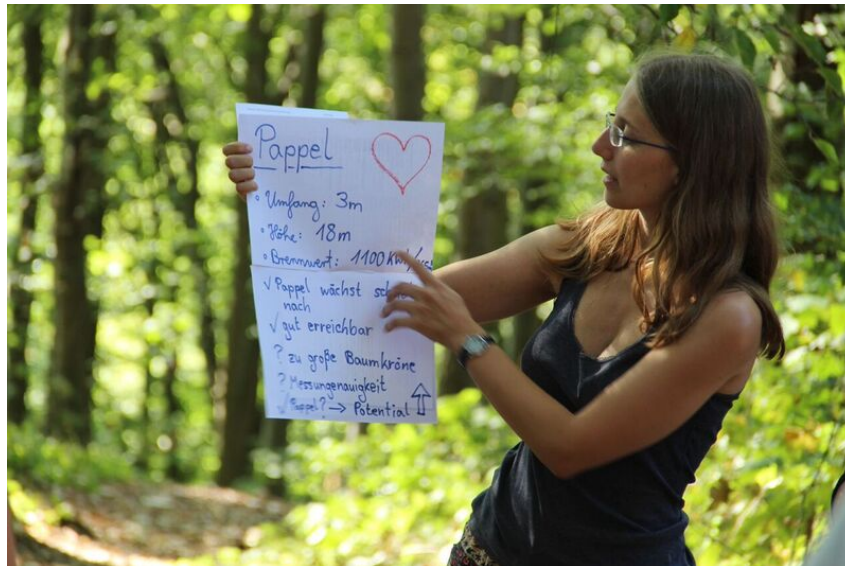 Pappel
• Umfang: 3m
• Höhe: 18m
• Brennwert: 1100 kWh/
✓ Pappel wächst
nach
✓ gut erreichbar
? zu große Baumkrone
? Messungenauigkeit
✓ Pappel? → Potential ⇧